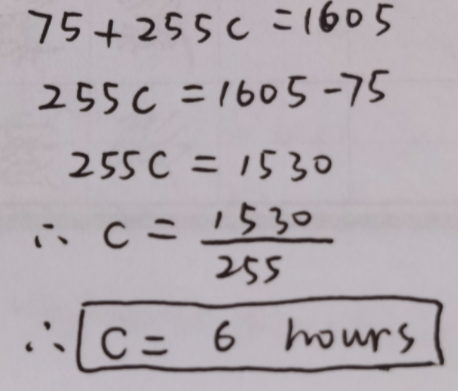 75 + 255c = 1605
255c = 1605 - 75
255c = 1530
∴ c = 1530/255
∴ c = 6 hours